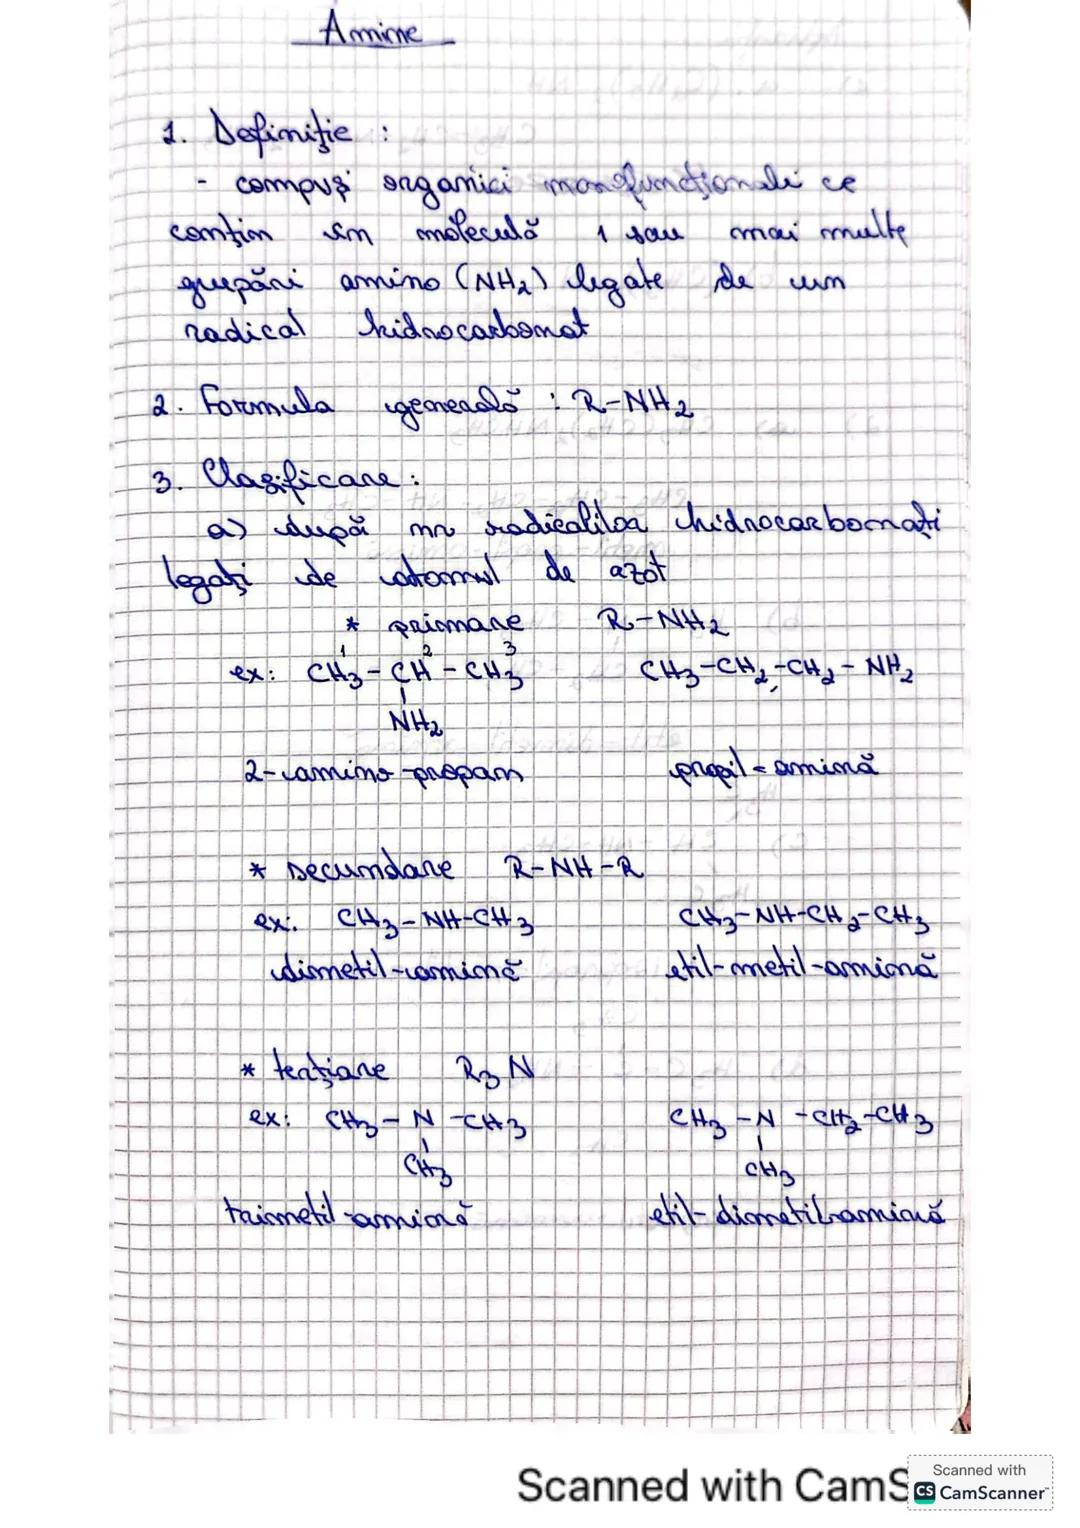 Amine
1. Definiție :
- compuși organici monofuncționali ce
conțin în moleculă 1 sau mai multe
grupări amino (NH₂) legate de un
radical hidrocarbonat
2. Formula generală : R-NH₂
3. Clasificare :
a) după nr radicalilor hidrocarbonați
legați de atomul de azot
* primare R-NH₂
1 2 3
ex: CH₃-CH-CH₃ CH₃-CH₂-CH₂-NH₂
NH₂
2-amino-propan propil-amină
* secundare R-NH-R
ex: CH₃-NH-CH₃ CH₃-NH-CH₂-CH₃
dimetil-amină etil-metil-amină
* terțiare R₃N
ex: CH₃-N-CH₃ CH₃-N-CH₂-CH₃
CH₃ CH₃
trimetil-amină etil-dimetil-amină
Scanned with CamS
Scanned with
CS CamScanner